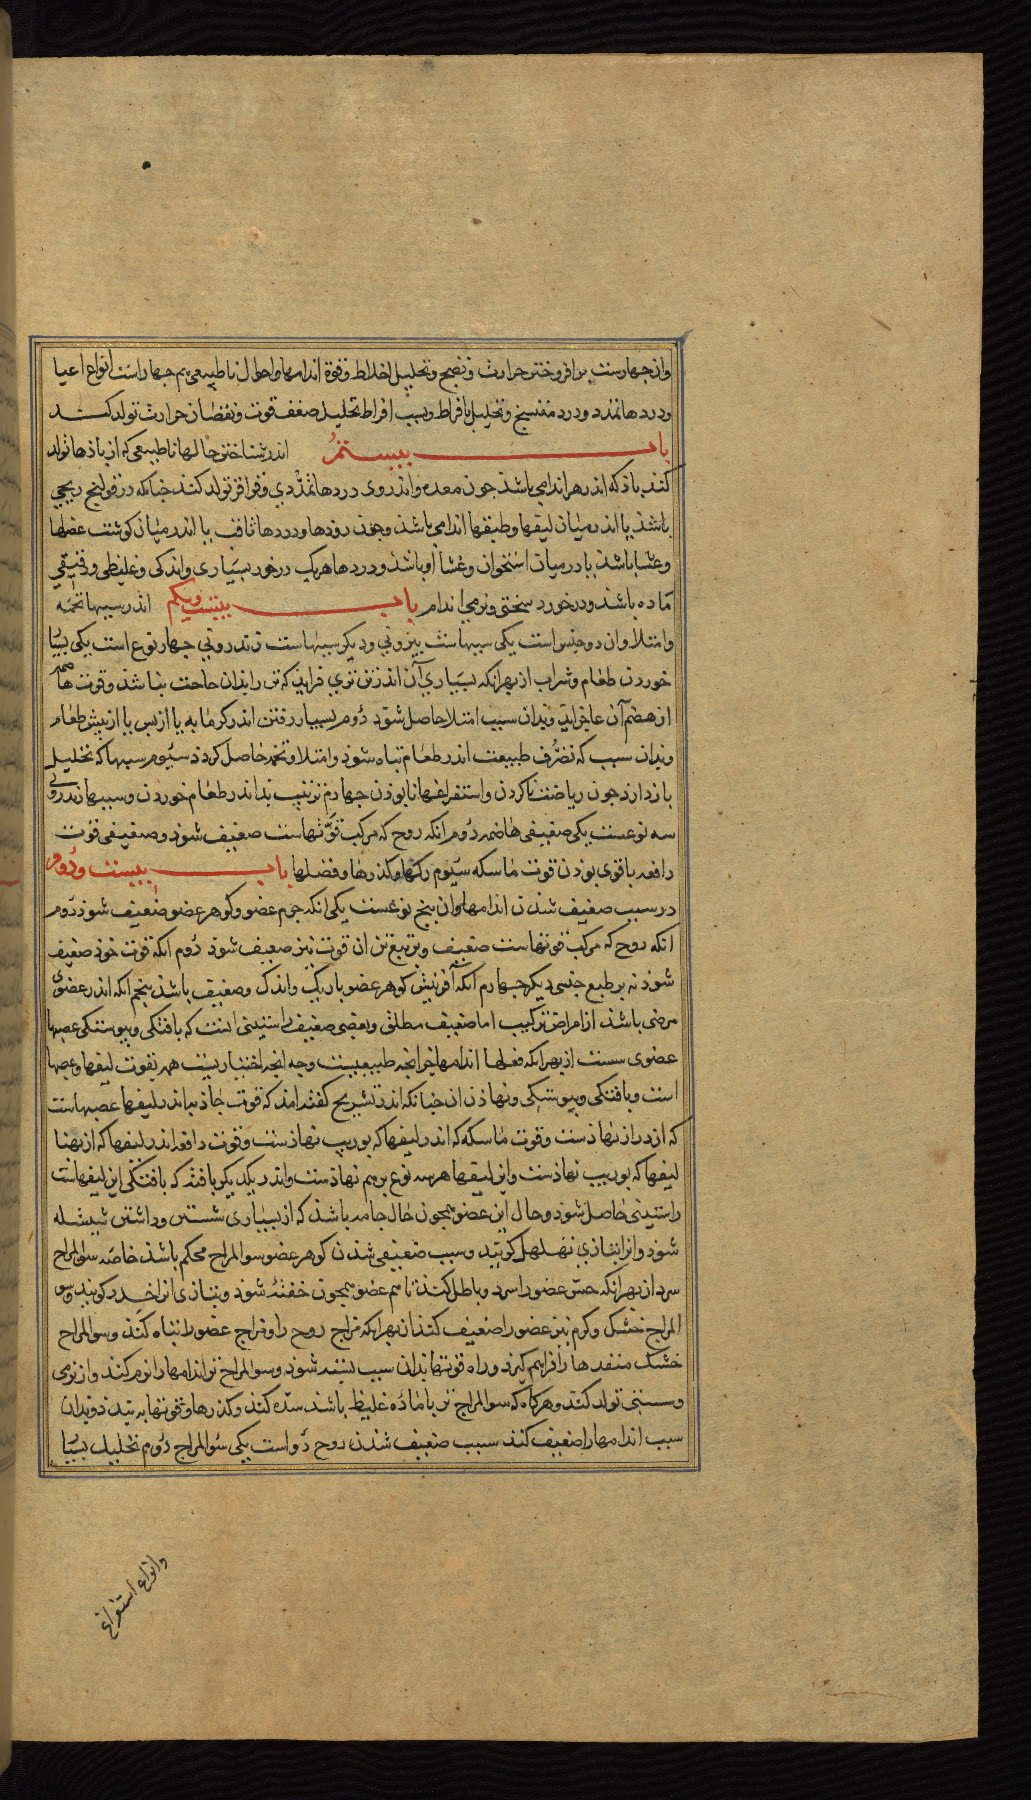 واز جهارست برافروختن حرارت ونضج وتحلیل اخلاط وقوة اندامها واحوال ناطبیعی هم جهار است انواع اعیا
ودردها تمدد ودرد مفسخ وتحلیل بافراط وبسبب افراط تحلیل ضعف قوت ونقصان حرارت تولد کند
باب بیستم اندر شناختن حالها ناطبیعی که از باذها تولد
کند باذ که اندر هر اندامی باشذ جون معده واندر وی دردها تمددی وقراقر تولد کند جنانکه در قولنج ریحی
باشذ یا اندر میان لیفها وطبقها اندامی باشذ وجون روذها ودردها ثاقب یا اندر میان کوشت عضلها
وغشا باشذ یا در میان استخوان وغشا او باشذ ودردها هر یک در خور بسیاری واندکی وغلیظی ورقیقی
ماده باشند ودر خورد سختی ونرمی اندام باب بیست ویکم اندر سببها تخمه
وامتلا وان دو جنس است یکی سببهاست بیرونی ودیکر سببهاست اندرونی جهار نوع است یکی بسیا
خوردن طعام وشراب از بهر انکه بسیاری آن اندر تن تری فزاید که تن را بذان حاجت نباشد وقوت هاضمه
از هضم آن عاجز اید وبذان سبب امتلا حاصل شوذ دوم بسیار رفتن اندر کرمابه یا از پس یا از پیش طعام
وبذان سبب که تصرف طبیعت اندر طعام تباه شوذ وامتلا وتخمه حاصل کردذ سیوم سببها که تحلیل
باز دارذ جون ریاضت ناکردن واستفراغها نابوذن جهارم ترتیب بذ اندر طعام خوردن وسببها اندرونی
سه نوعست یکی ضعیفی هاضمه دوم انکه روح که مرکب قوتهاست ضعیف شوذ وضعیفی قوت
دافعه با قوی بوذن قوت ماسکه سیوم رکها وکذرها وفضلها باب بیست ودوم
در سبب ضعیف شذن اندامها وان پنج نوعست یکی انکه جرم عضو وکوهر عضو ضعیف شوذ دوم
انکه روح که مرکب قوتهاست ضعیف وبر تبع تن ان قوت نیز ضعیف شوذ دوم انکه قوت خوذ ضعیف
شوذ نه بر طبع جنسی دیکر جهارم انکه آفرینش کوهر عضو باریک واندک وضعیف باشذ پنجم انکه اندر عضوی
مرضی باشذ از امراض ترکیب اما ضعیف مطلق وبعضی ضعیف است که بافتکی وپیوستکی عصبها
عضوی سست از بهر انکه فعلها اندامها جز انجه طبیعیست وجه انجه اختیاریست همه بقوت لیفها وعصبها
است وبافتکی وپیوستکی ونهاذن ان جنانکه اندر تشریح کفته امذ که قوت جاذبه اندر لیفها عصبهاست
که از درازا نهاذست وقوت ماسکه که اندر لیفها که بوریب نهاذست وقوت دافعه اندر لیفها که از پهنا
لیفها که بوریب نهاذست واین لیفها هر سه نوع بر هم نهاذست واندر یکدیکر بافته که بافتکی این لیفهاست
راستینی حاصل شوذ وحال این عضو همجون حال جامه باشذ که از بسیاری شستن وداشتن
شوذ وانرا بتازی تهلهل کویند وسبب ضعیفی شذن کوهر عضو سو المزاج محکم باشذ خاصه سو المزاج
سرد از بهر انکه حس عضو را سرد وباطل کند تا هم عضو همجون خفته شوذ وبتازی انرا خدر کویند وسو
المزاج خشک وکرم نیز عضو را ضعیف کند از بهر انکه مزاج روح را ومزاج عضو را تباه کند وسو المزاج
خشک منفذها را فراهم کیرذ وراه قوتها بذان سبب بسته شوذ وسو المزاج تر اندامها را نرم کند واز نرمی
وسستی تولد کند وهرکاه که سو المزاج تر با ماده غلیظ باشذ سده کند وکذرها وقوتها ببندذ وبذان
سبب اندامها را ضعیف کند سبب ضعیف شذن روح دو است یکی سو المزاج دوم تحلیل بسیا
وانواع استفراغ